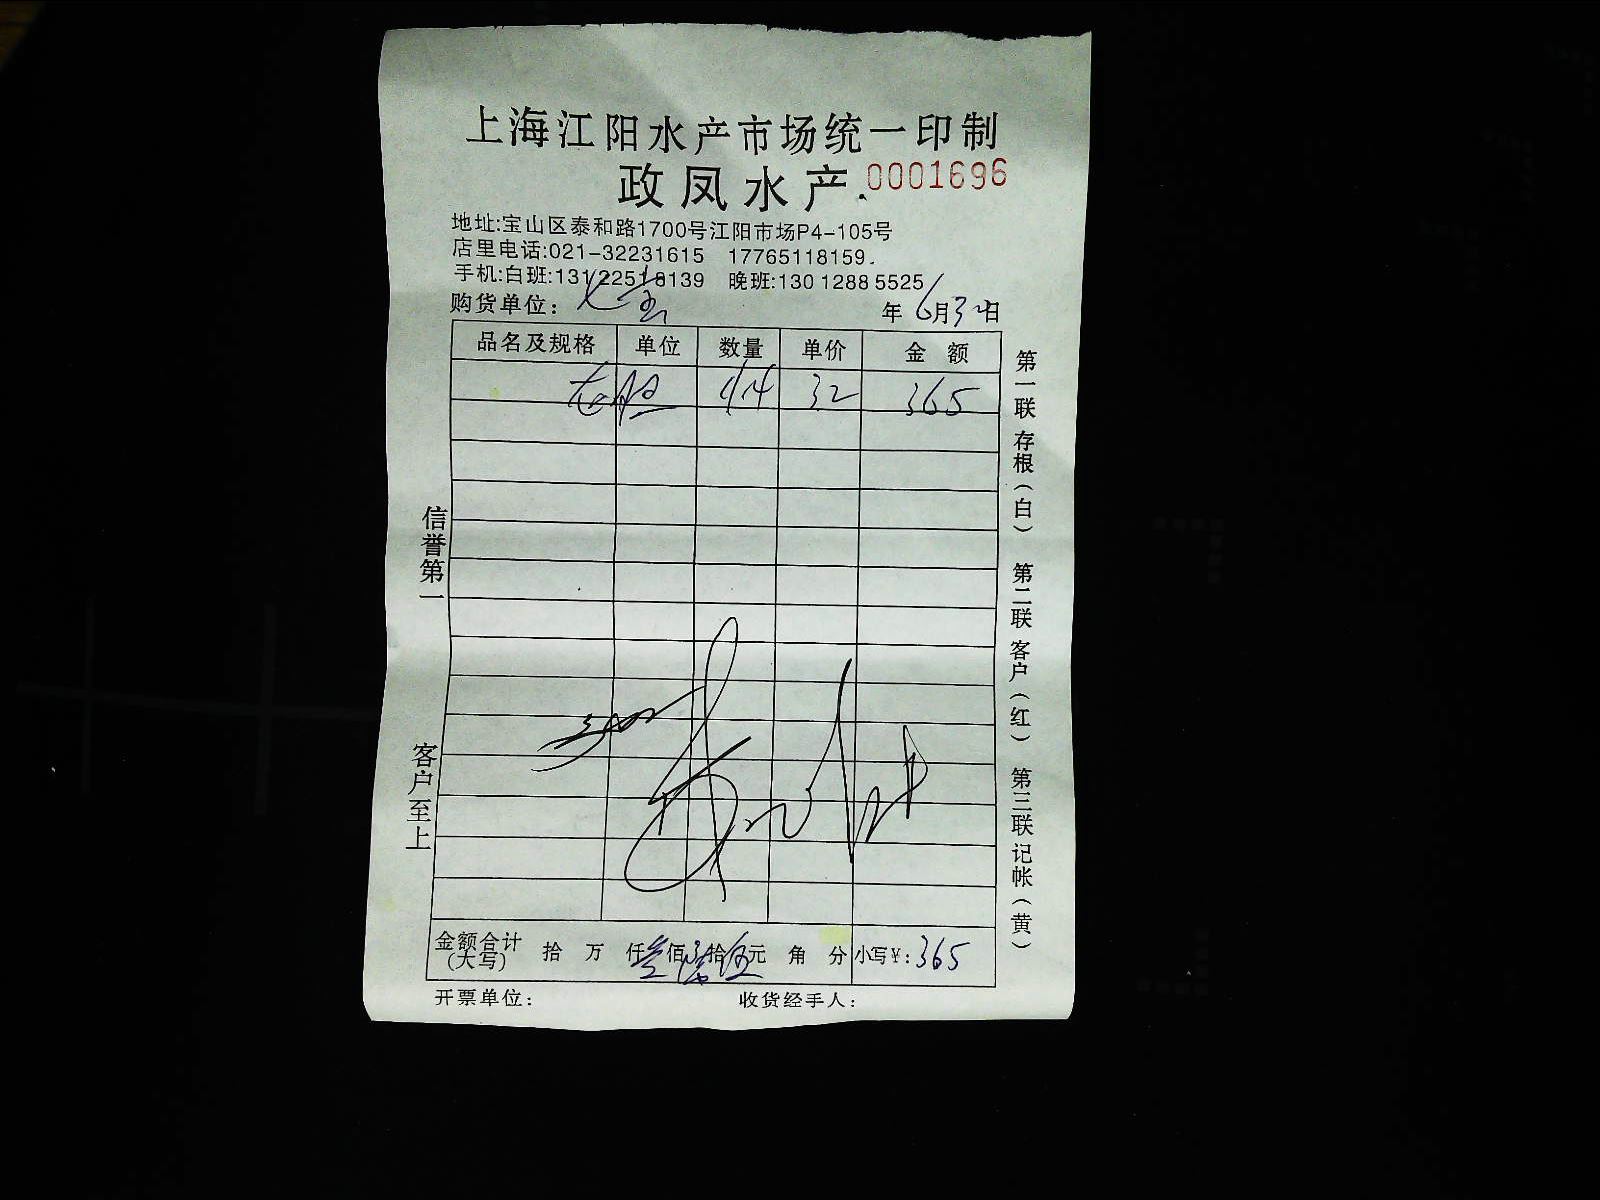 上海江阳水产市场统一印制
政凤水产. 0001696
地址:宝山区泰和路1700号江阳市场P4-105号
店里电话:021-32231615 17765118159.
手机:白班:131 2251 8139 晚班:130 1288 5525
购货单位: 年 6月30日
品名及规格 单位 数量 单价 金额
32 365
信誉第一
客户至上
第一联 存根(白) 第二联 客户(红) 第三联 记帐(黄)
金额合计(大写) 拾 万 仟叁佰陆拾伍元 角 分 小写¥:365
开票单位: 收货经手人: